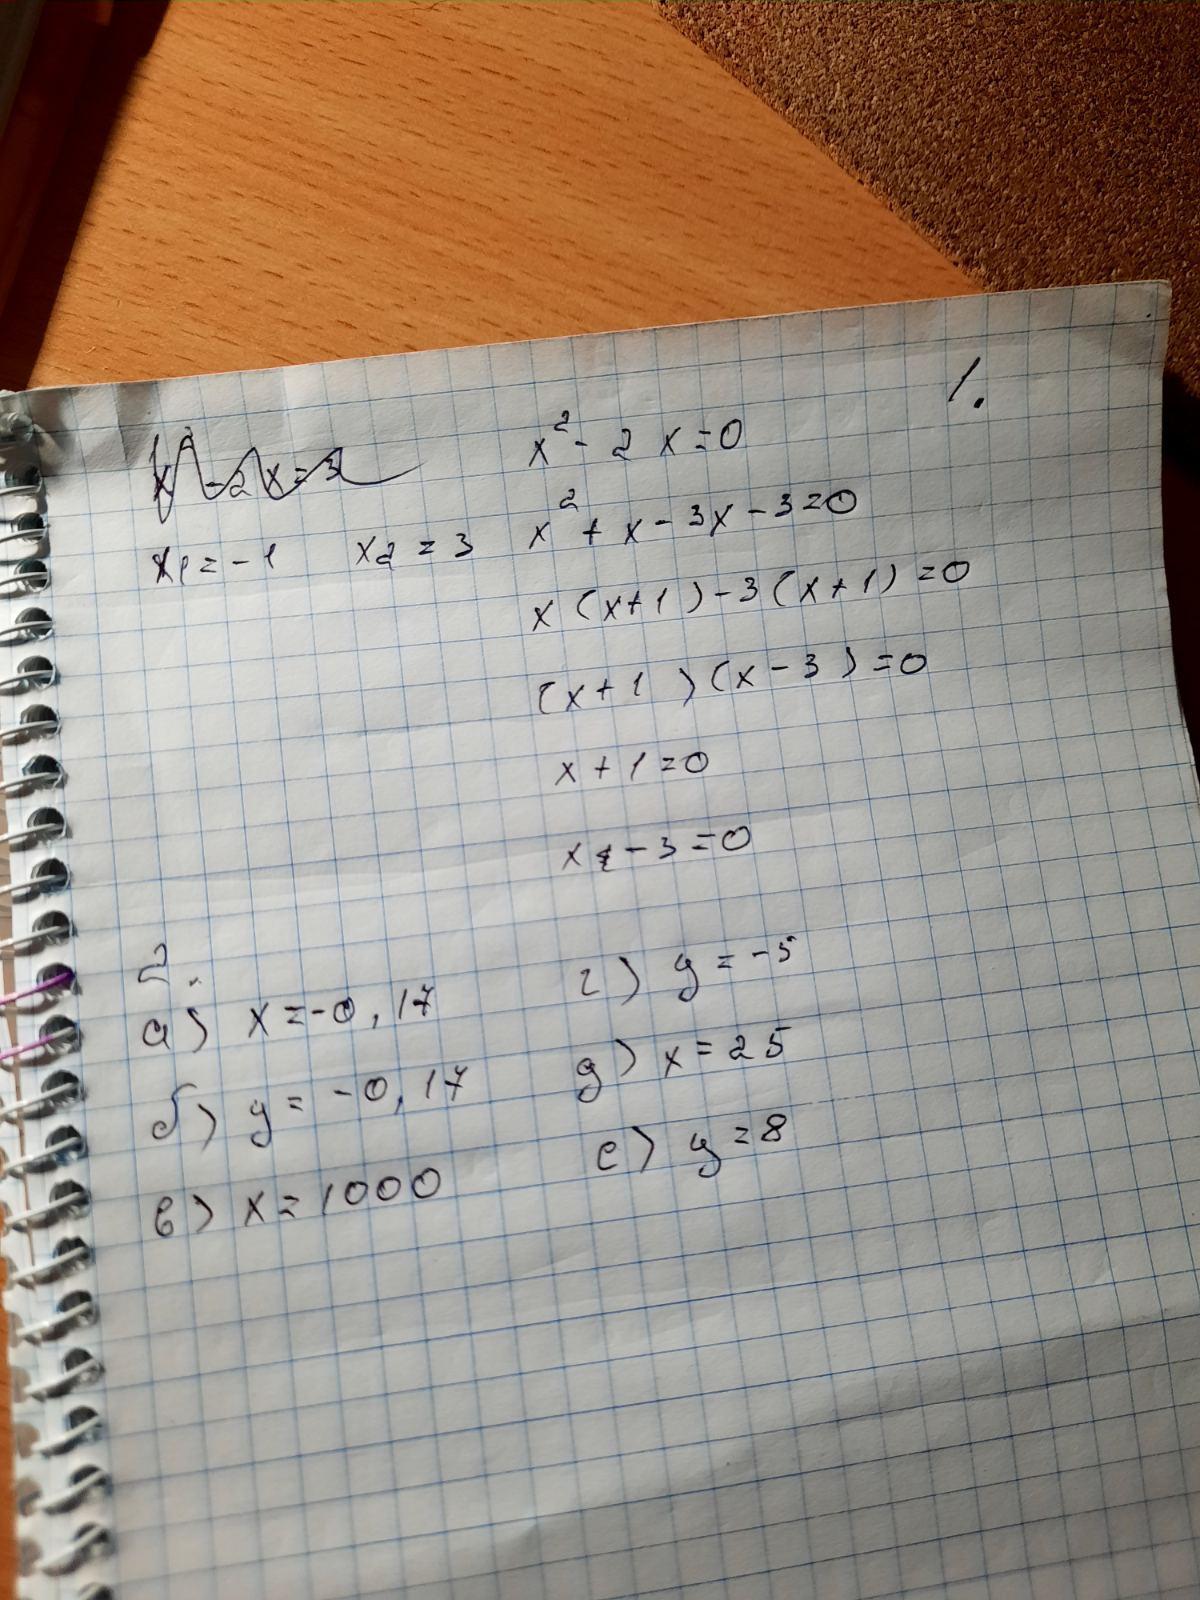 1.
x² - 2x = 3
x² - 2 x = 0
x1 = -1 x2 = 3
x² + x - 3x - 3 = 0
x (x+1) - 3 (x+1) = 0
(x+1) (x-3) = 0
x + 1 = 0
x - 3 = 0
2.
а) x = -0,17
б) y = -0,17
в) x = 1000
г) y = -5
д) x = 25
е) y = 8